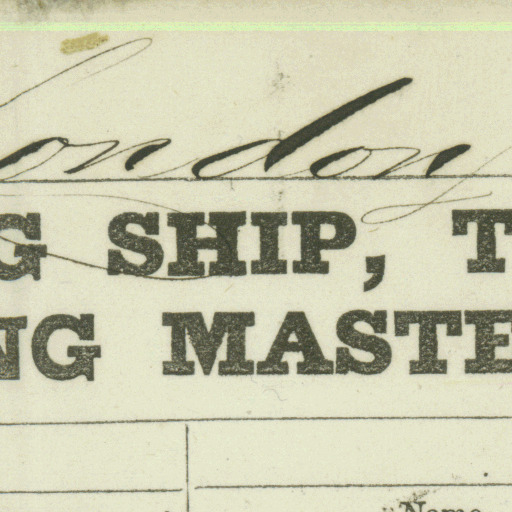 London
G SHIP, T
NG MASTE
Name